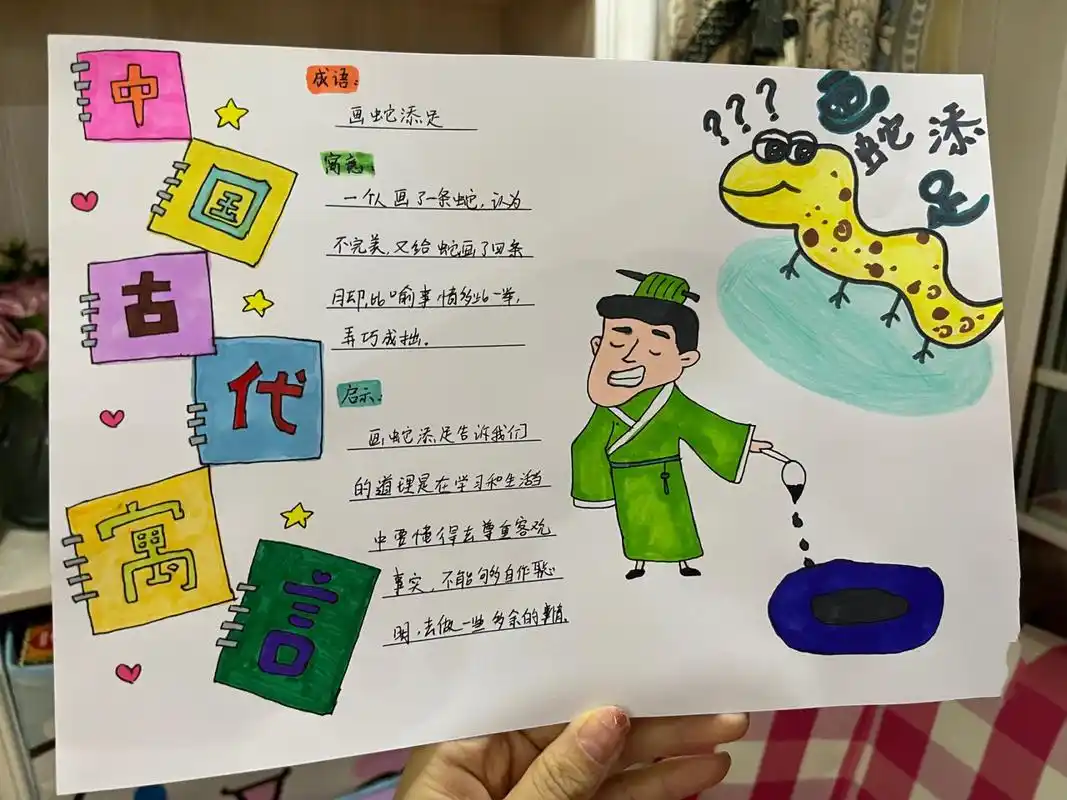 中
国
古
代
寓
言
成语:
画蛇添足
寓意:
一个人画了一条蛇,认为
不完美,又给蛇画了四条
月却,比喻事情多此一举,
弄巧成拙。
启示:
画蛇添足告诉我们
的道理是在学习和生活当
中要懂得去尊重客观
事实,不能够自作聪
明,去做一些多余的事情。
???
画蛇添足